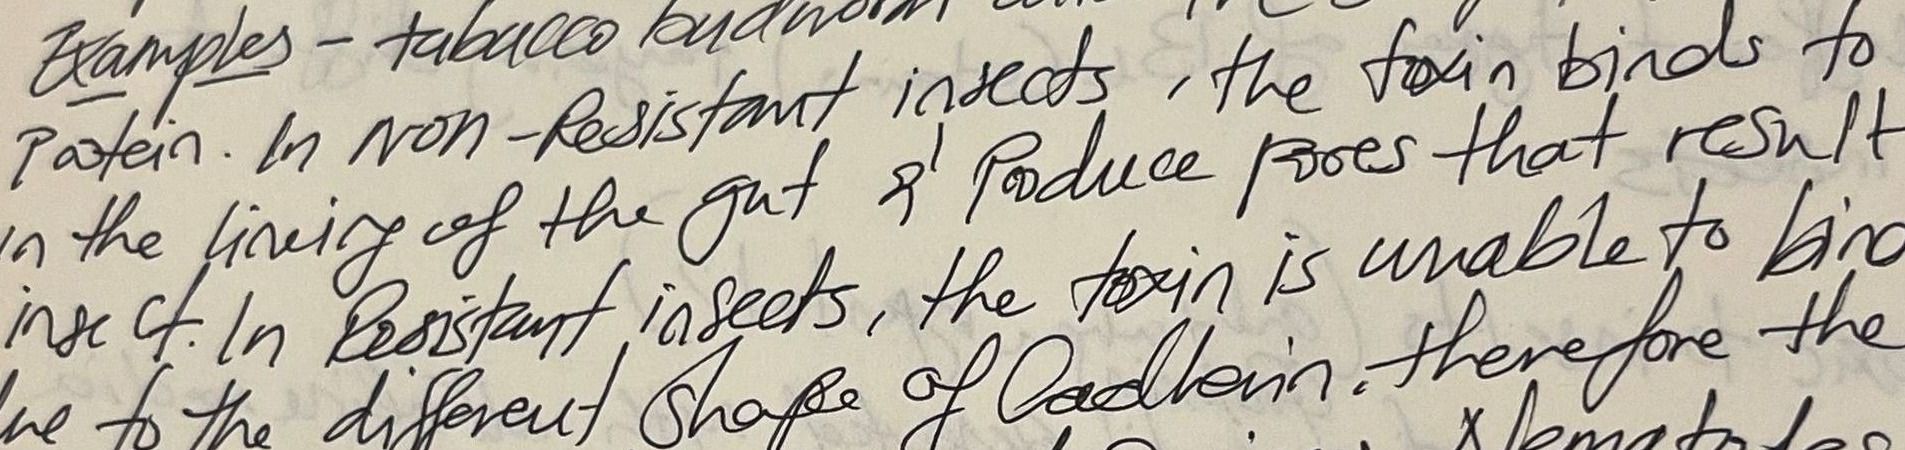 Examples - tabacco budworm
Protein. In Non-Resistant insects, the toxin binds to
in the lining of the gut & Produce pores that result
insect. In Resistant insects, the toxin is unable to bind
due to the different shape of Cadherin. therefore the
Nematodes